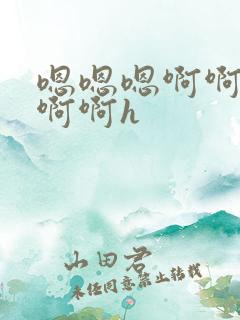 嗯嗯嗯啊啊
啊啊h
山田君
未经同意禁止转载